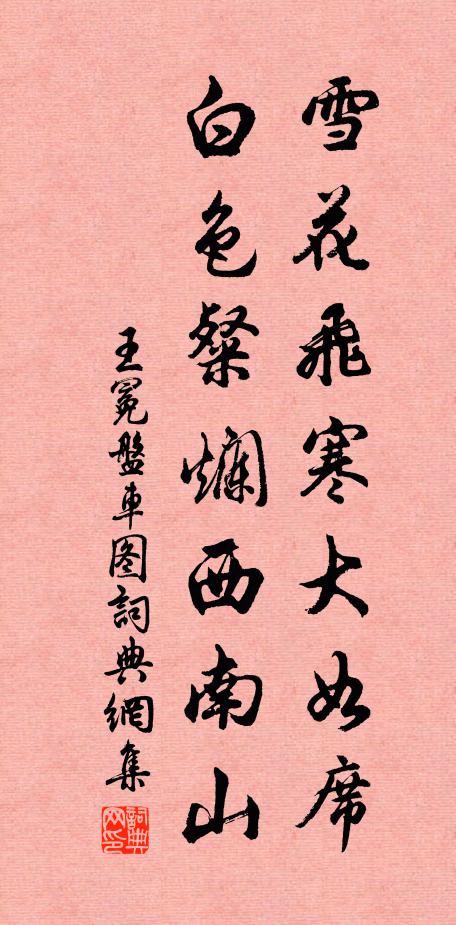 雪花飛寒大如席
白色粲爛西南山
王冕盤車圖詞典網集
詞典網印